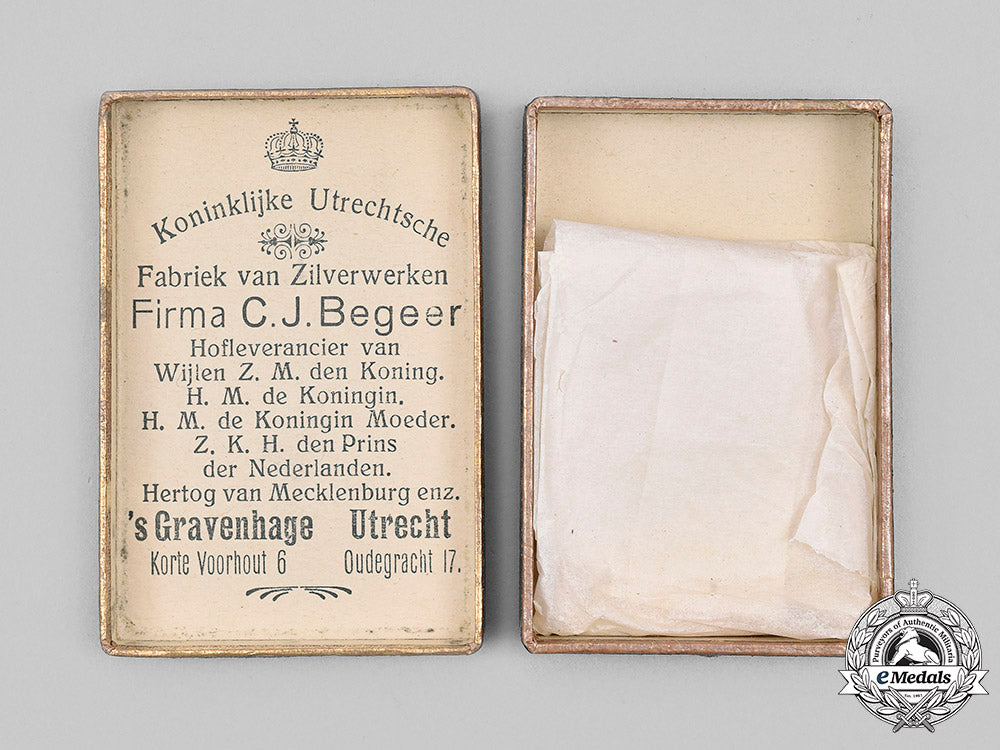 Koninklijke Utrechtsche
Fabriek van Zilverwerken
Firma C.J.Begeer
Hofleverancier van
Wijlen Z. M. den Koning.
H. M. de Koningin.
H. M. de Koningin Moeder.
Z. K. H. den Prins
der Nederlanden.
Hertog van Mecklenburg enz.
's Gravenhage Utrecht
Korte Voorhout 6 Oudegracht 17.
Purveyors of Authentic Militaria
eMedals